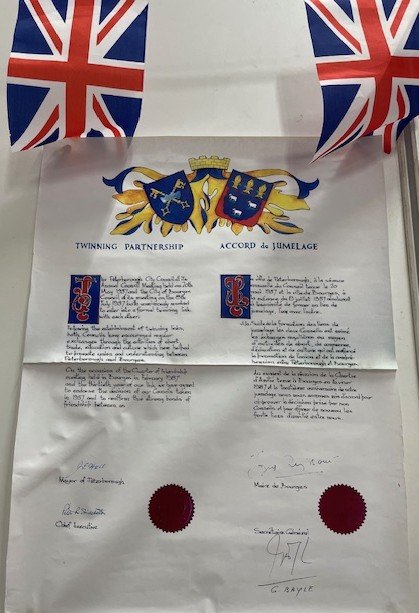 TWINNING PARTNERSHIP
The Peterborough City Council at its
Annual Council Meeting held on 20th
May 1957 and the City of Bourges
Council at its meeting on the 8th
July 1957 both unanimously agreed
to enter into a formal twinning link
with each other.
Following the establishment of twinning links,
both Councils have encouraged regular
exchanges through the activities of sport,
trade, education and culture which has helped
to promote amity and understanding between
Peterborough and Bourges.
On the occasion of the Charter of Friendship
meeting held in Bourges in February 1987
and the thirtieth year of our link, we have agreed
to endorse the decisions of our Councils taken
in 1957 and to reaffirm the strong bonds of
friendship between us.
Mayor of Peterborough
Chief Executive
ACCORD de JUMELAGE
La ville de Peterborough, à la séance
annuelle du Conseil tenue le 20
mai 1957 et la ville de Bourges,
à sa séance du 8 juillet 1957
de former un lien de
jumelage, l'une avec l'autre.
A la suite de la formation des liens de
jumelage les deux Conseils ont assuré
les échanges réguliers au moyen
d'activités de sport, de commerce,
d'éducation et de culture qui ont renforcé
la promotion de l'amitié et de la compré-
hension entre Peterborough et Bourges.
Au moment de la réunion de la Charte
d'Amitié tenue à Bourges en février
1987 et le trentième anniversaire de notre
jumelage nous nous sommes mis d'accord pour
approuver la décision prise par nos
Conseils et pour affirmer de nouveau les
forts liens d'amitié entre nous.
Maire de Bourges
Secrétaire Général
G. BAYLE